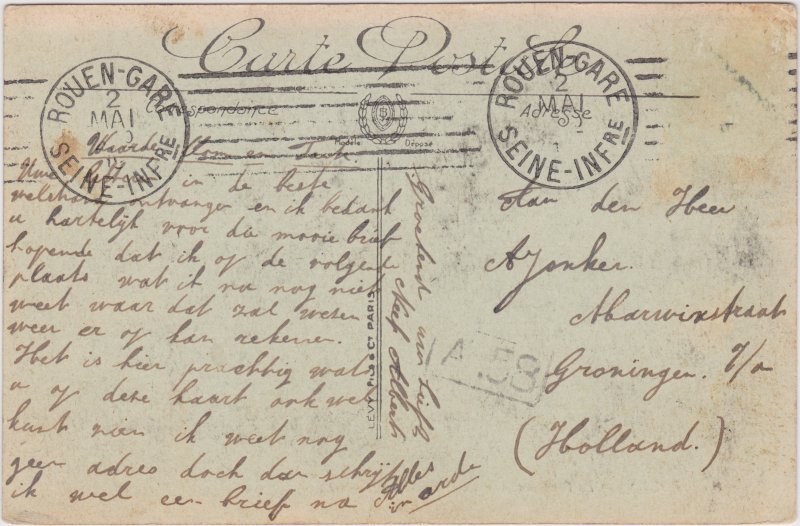 Carte Postale
ROUEN-GARE
2
MAI
SEINE-INFRE
ROUEN-GARE
2
MAI
SEINE-INFRE
Correspondance
Adresse
Modèle Déposé
Waarde Oom en Tante
Uwe in de beste
welstand ontvangen en ik bedank
u hartelijk voor die mooie brief
hopende dat ik op de volgende
plaats wat ik nu nog niet
weet waar dat zal wezen
weer er op kan rekenen.
Het is hier prachtig wat
u op deze kaart ook wel
kunt zien ik weet nog
geen adres doch dan schrijf
ik wel een brief na
Alles
in orde
Groetend uw Liefh
Neef Albert
LÉVY FILS & Cie PARIS
Aan den Heer
A Jonker.
Marwixstraat
Groningen.
(Holland.)
A 58